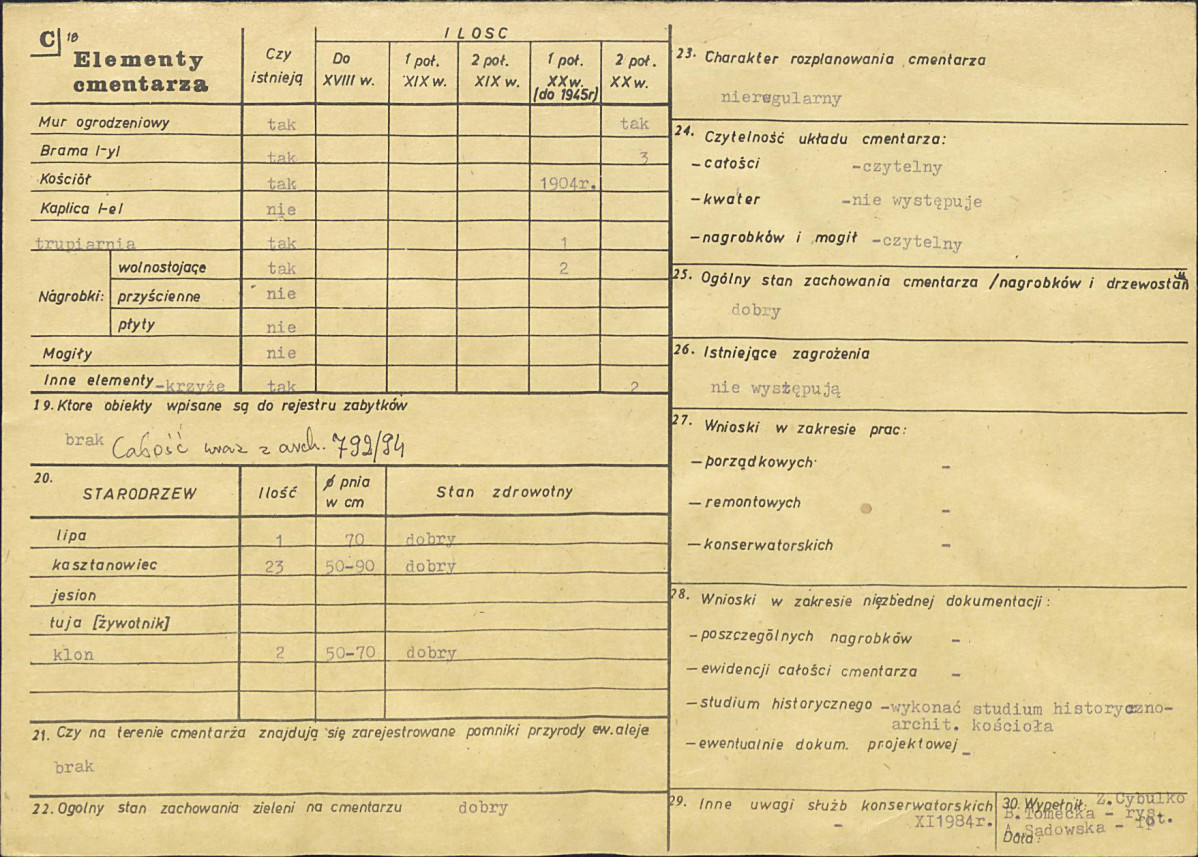 C 18
Elementy cmentarza
Czy istnieją
ILOSC
Do XVIII w.
1 poł. XIX w.
2 poł. XIX w.
1 poł. XX w. (do 1945r)
2 poł. XX w.
Mur ogrodzeniowy tak tak
Brama I-yl tak 3
Kościół tak 1904r.
Kaplica I-el nie
trupiarnia tak 1
Nagrobki: wolnostojące tak 2
przyścienne nie
płyty nie
Mogiły nie
Inne elementy -krzyże tak 2
19. Ktore obiekty wpisane są do rejestru zabytków
brak Całość wraz z arch. 792/94
20. STARODRZEW Ilość ϕ pnia w cm Stan zdrowotny
lipa 1 70 dobry
kasztanowiec 23 50-90 dobry
jesion
tuja [żywotnik]
klon 2 50-70 dobry
21. Czy na terenie cmentarza znajdują się zarejestrowane pomniki przyrody ew. aleje
brak
22. Ogolny stan zachowania zieleni na cmentarzu dobry
23. Charakter rozplanowania cmentarza
nieregularny
24. Czytelność układu cmentarza:
-całości -czytelny
-kwater -nie występuje
-nagrobków i mogił -czytelny
25. Ogólny stan zachowania cmentarza /nagrobków i drzewostan
dobry
26. Istniejące zagrożenia
nie występują
27. Wnioski w zakresie prac:
-porządkowych -
-remontowych -
-konserwatorskich -
28. Wnioski w zakresie niezbednej dokumentacji:
-poszczególnych nagrobków -
-ewidencji całości cmentarza -
-studium historycznego -wykonać studium historyczno-
archit. kościoła
-ewentualnie dokum. projektowej -
29. Inne uwagi służb konserwatorskich
-
XI1984r.
30. Wypełnił: Z.Cybulko
B.Tomecka - rys.
A.Sadowska -
Data: